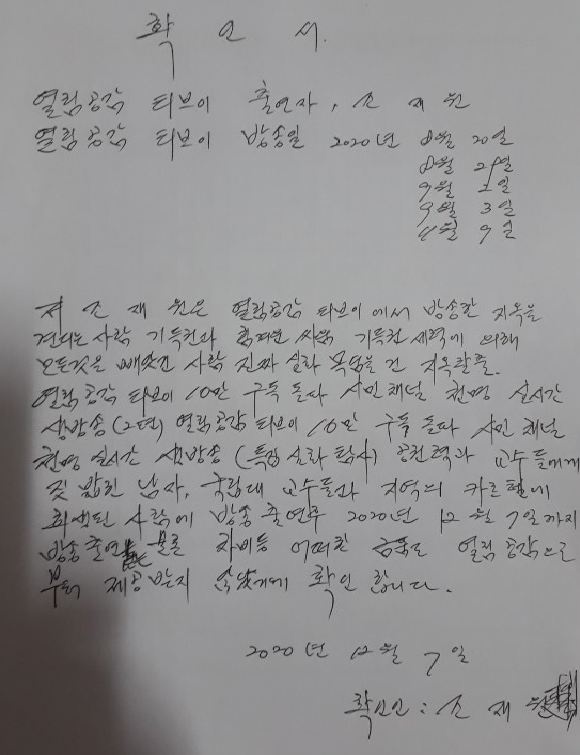 확 인 서.
열림공감 티브이 출연자, 소 재 원
열림공감 티브이 방송일 2020년 8월 20일
8월 29일
9월 2일
9월 3일
11월 9일
저 소 재 원은 열림공감 티브이에서 방송한 지옥을
견디는 사람 기득권과 힘겨운 싸움 기득권 세력에 의해
모든것을 빼앗긴 사람 진짜 실화 목숨을 건 지옥탈출.
열림공감 티브이 10만 구독 돌파 시민채널 천명 실시간
생방송(2편) 열림공감 티브이 10만 구독 돌파 시민 채널
천명 실시간 생방송 (특집 실화 탐사) 공권력과 교수들에게
짓 밟힌 남자. 국립대 교수들과 지역의 카르텔에
희생된 사람에 방송 출연후 2020년 12월 7일까지
방송 출연료는 물론 차비등 어떠한 금품도 열림공감으로
부터 제공받지 않았기에 확인 합니다.
2020년 12월 7일
확인인 : 소 재 원